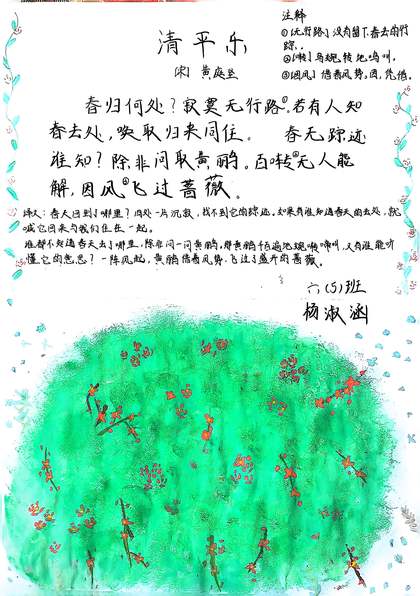 清平乐
[宋] 黄庭坚
注释
①无行路：没有留下春去的行
踪。
②啭：鸟婉转地鸣叫。
③因风：借着风势。因，凭借。
春归何处？寂寞无行路①。若有人知
春去处，唤取归来同住。 春无踪迹
谁知？除非问取黄鹂。百啭②无人能
解，因风③飞过蔷薇。
译文：春天回到了哪里？四处一片沉寂，找不到它的踪迹。如果有谁知道春天的去处，就
喊它回来与我们住在一起。
谁都不知道春天去了哪里，除非问一问黄鹂，那黄鹂婉转地鸣叫，又有谁能听
懂它的意思？一阵风起，黄鹂借着风势，飞过了盛开的蔷薇。
六(5)班
杨淑涵